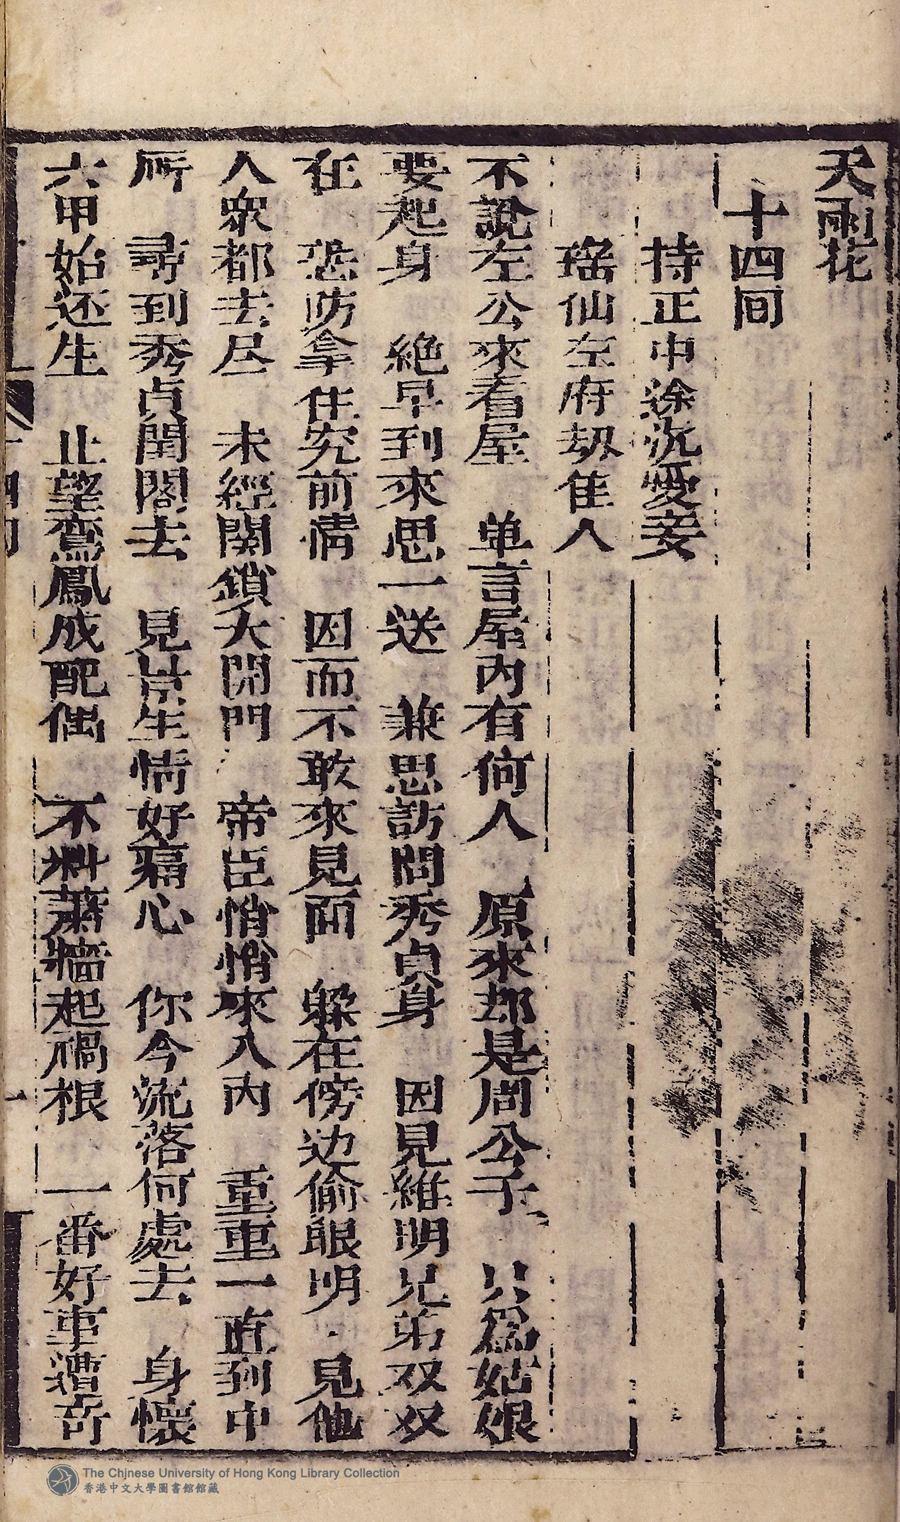 天雨花
十四囬
持正申涂沉愛妾
瑤仙左府刼隹人
不說左公來看屋 单言屋内有何人 原來却是周公子 只爲姑娘
要起身 絶早到來思一送 兼思訪問秀貞身 因見維明兄弟双双
在 恐防拿住究前情 因而不敢來見面 躲在傍边偷眼明 見他
人衆都去尽 未經関鎖大開門 帝臣悄悄來入内 重重一直到中
所 尋到秀貞閨閣去 見景生情好痛心 你今流落何處去 身懷
六甲始还生 止望鸞鳳成配偶 不料蕭牆起禍根 一番好事遭奇
十四囬
一
The Chinese University of Hong Kong Library Collection
香港中文大學圖書館館藏